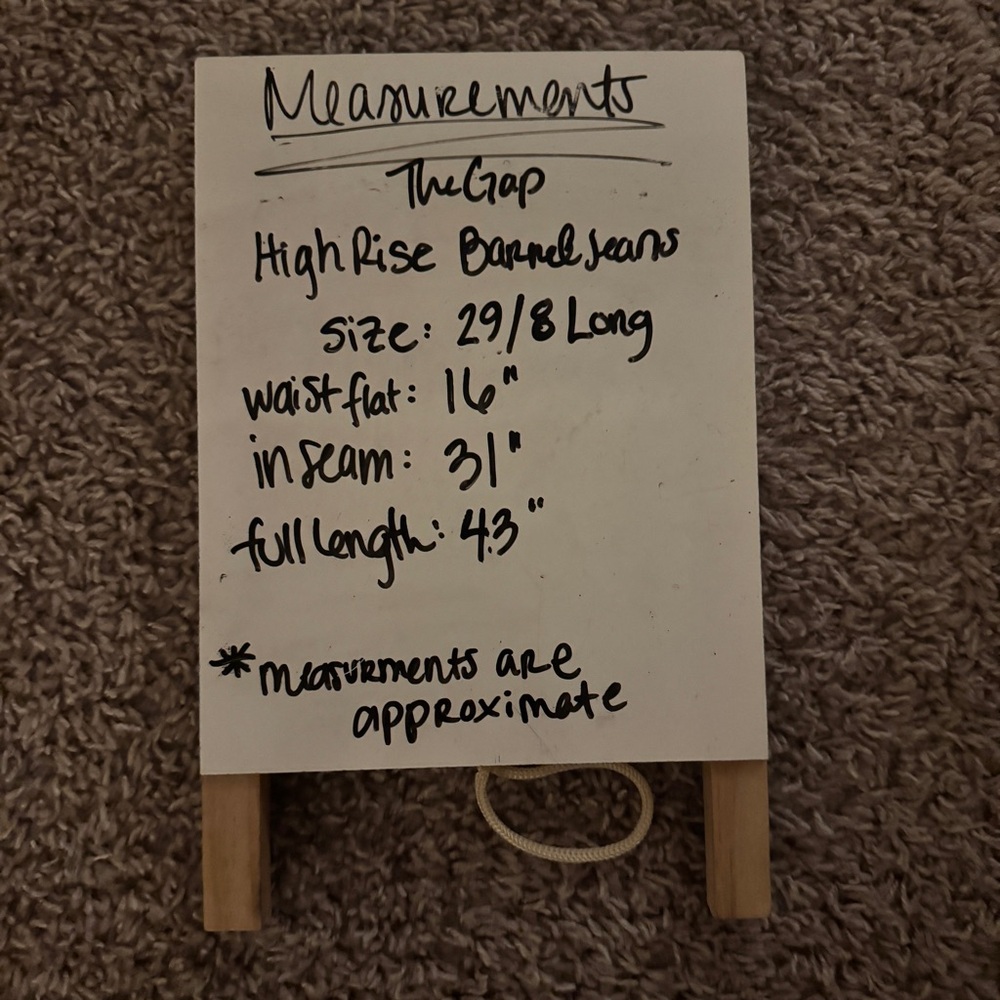 Measurements
The Gap
High Rise Barrel Jeans
size: 29/8 Long
waist flat: 16"
inseam: 31"
full length: 43"
*measurments are
approximate